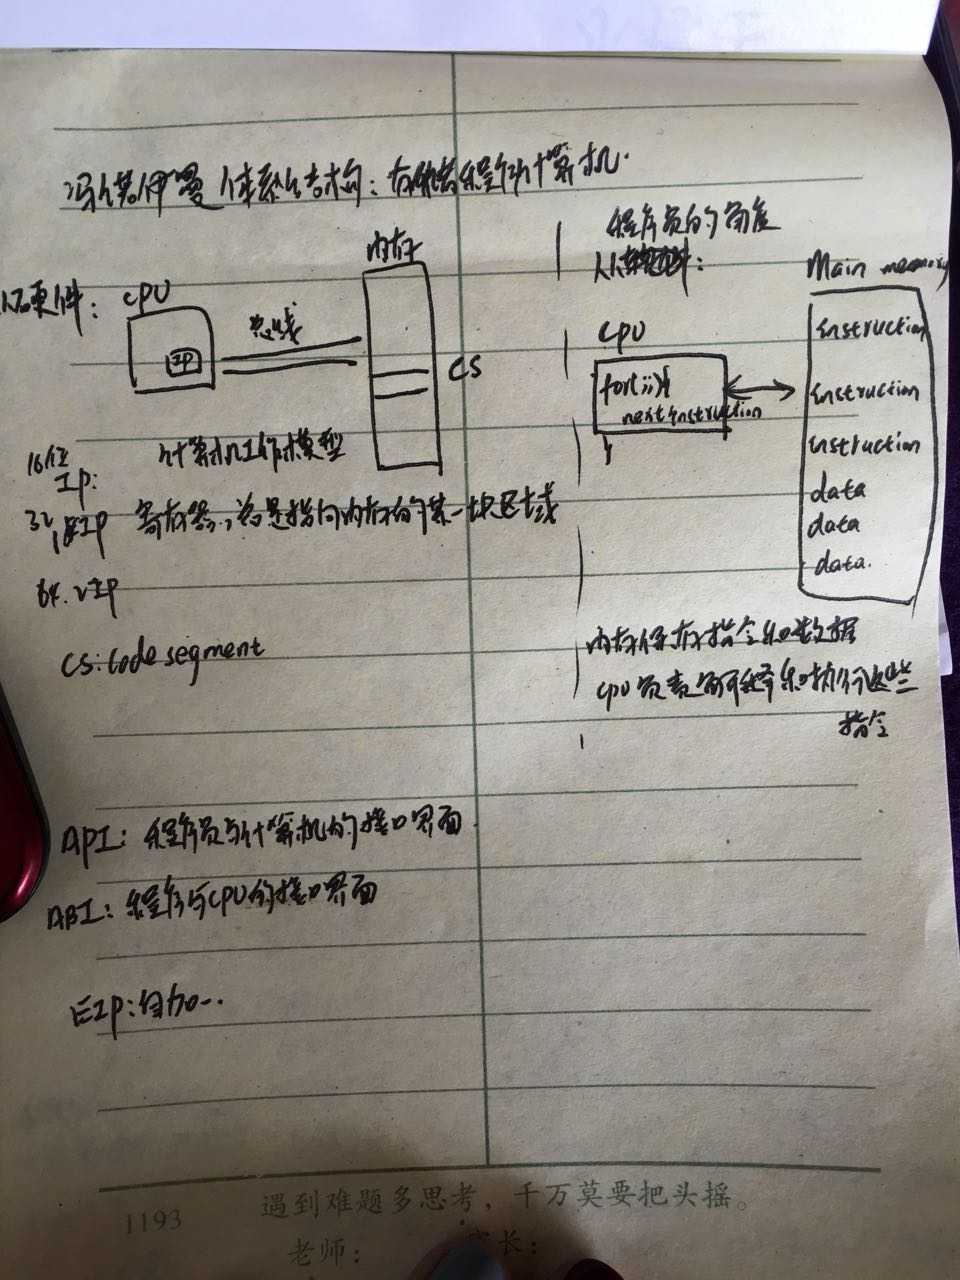 冯诺伊曼体系结构：存储程序计算机.
从硬件：
CPU
IP
总线
内存
CS
计算机工作模型
16位
IP:
32位 EIP 寄存器，总是指向内存的某一块区域
64. rIP
CS: Code segment
程序员的角度
CPU
for(;;){
next instruction
}
Main memory
instruction
instruction
instruction
data
data
data.
内存保存指令和数据
CPU负责解释和执行这些
指令
API: 程序员与计算机的接口界面
ABI: 程序与CPU的接口界面
EIP:自加..
遇到难题多思考，千万莫要把头摇。
1193
老师：
家长：